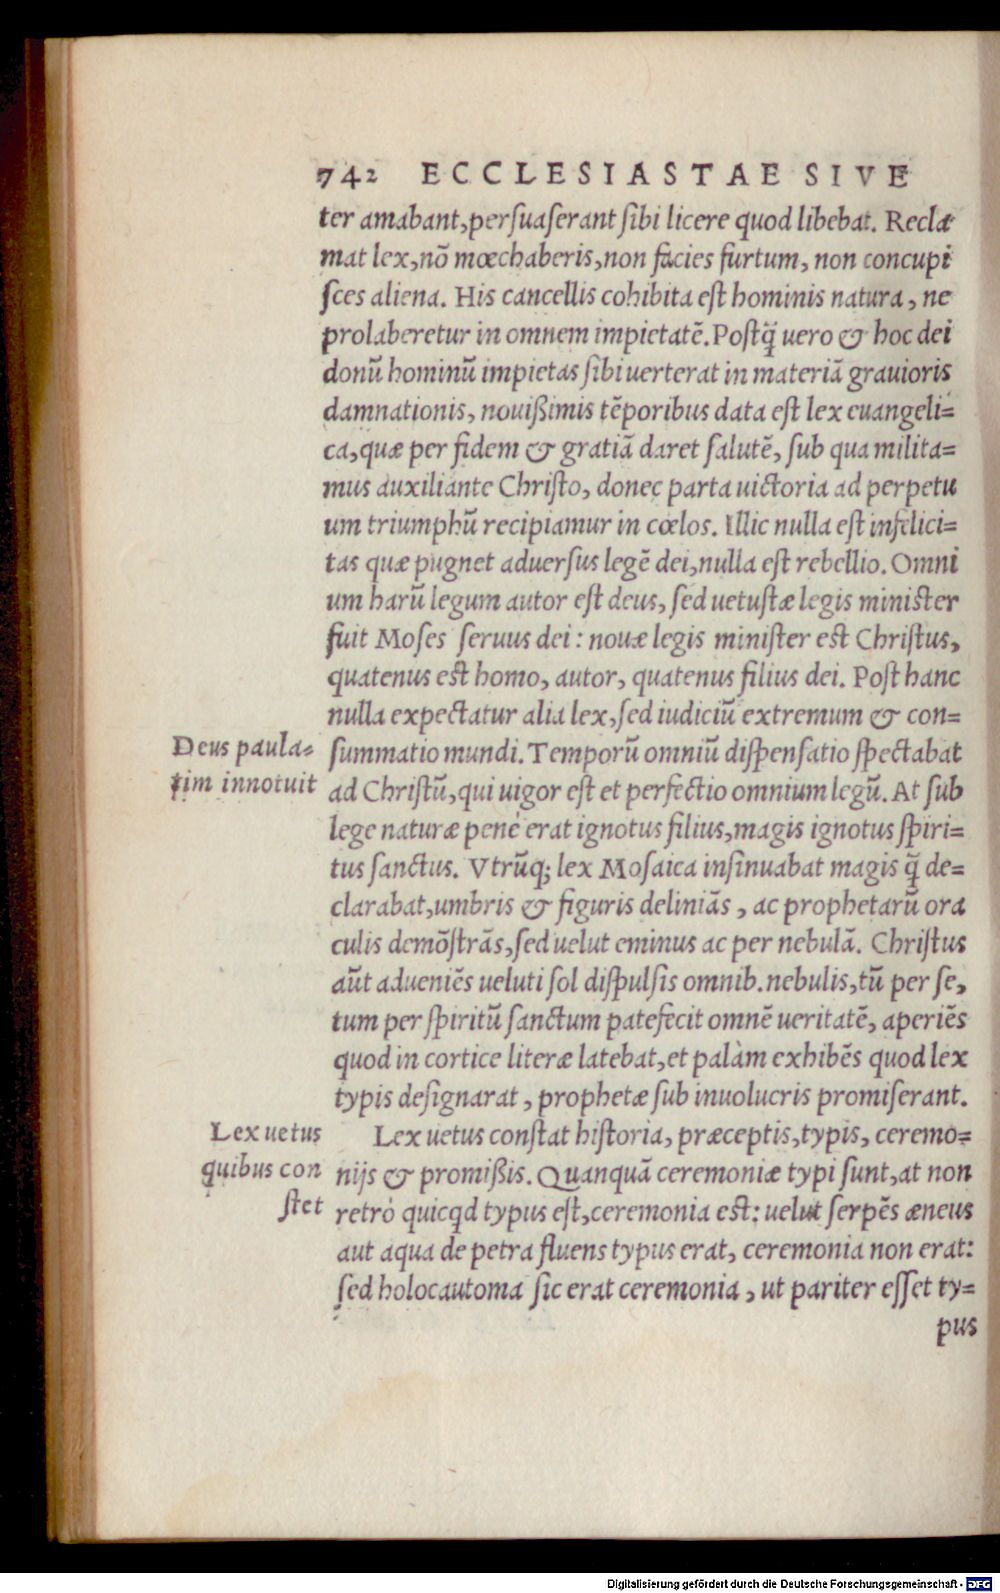 742 ECCLESIASTAE SIVE
ter amabant,persuaserant sibi licere quod libebat. Recla
mat lex,nõ mœchaberis,non facies furtum, non concupi
sces aliena. His cancellis cohibita est hominis natura, ne
prolaberetur in omnem impietatẽ. Postq̃ uero & hoc dei
donũ hominũ impietas sibi uerterat in materiã grauioris
damnationis, nouißimis tẽporibus data est lex euangeli=
ca,quæ per fidem & gratiã daret salutẽ, sub qua milita=
mus auxiliante Christo, donec parta uictoria ad perpetu
um triumphũ recipiamur in cœlos. Illic nulla est infelici=
tas quæ pugnet aduersus legẽ dei,nulla est rebellio. Omni
um harũ legum autor est deus, sed uetustæ legis minister
fuit Moses seruus dei: nouæ legis minister est Christus,
quatenus est homo, autor, quatenus filius dei. Post hanc
nulla expectatur alia lex,sed iudiciũ extremum & con=
Deus paula=
tim innotuit
summatio mundi. Temporũ omniũ dispensatio spectabat
ad Christũ,qui uigor est et perfectio omnium legũ. At sub
lege naturæ penè erat ignotus filius,magis ignotus spiri=
tus sanctus. Vtrũq; lex Mosaica insinuabat magis q̃ de=
clarabat,umbris & figuris deliniãs, ac prophetarũ ora
culis demõstrãs,sed uelut eminus ac per nebulã. Christus
aũt adueniẽs ueluti sol dispulsis omnib. nebulis,tũ per se,
tum per spiritũ sanctum patefecit omnẽ ueritatẽ, aperiẽs
quod in cortice literæ latebat,et palàm exhibẽs quod lex
typis designarat, prophetæ sub inuolucris promiserant.
Lex uetus
quibus con
stet
Lex uetus constat historia, præceptis,typis, ceremo=
nijs & promißis. Quanquã ceremoniæ typi sunt,at non
retrò quicqd typus est,ceremonia est: uelut serpẽs æneus
aut aqua de petra fluens typus erat, ceremonia non erat:
sed holocautoma sic erat ceremonia, ut pariter esset ty=
pus
Digitalisierung gefördert durch die Deutsche Forschungsgemeinschaft - DFG